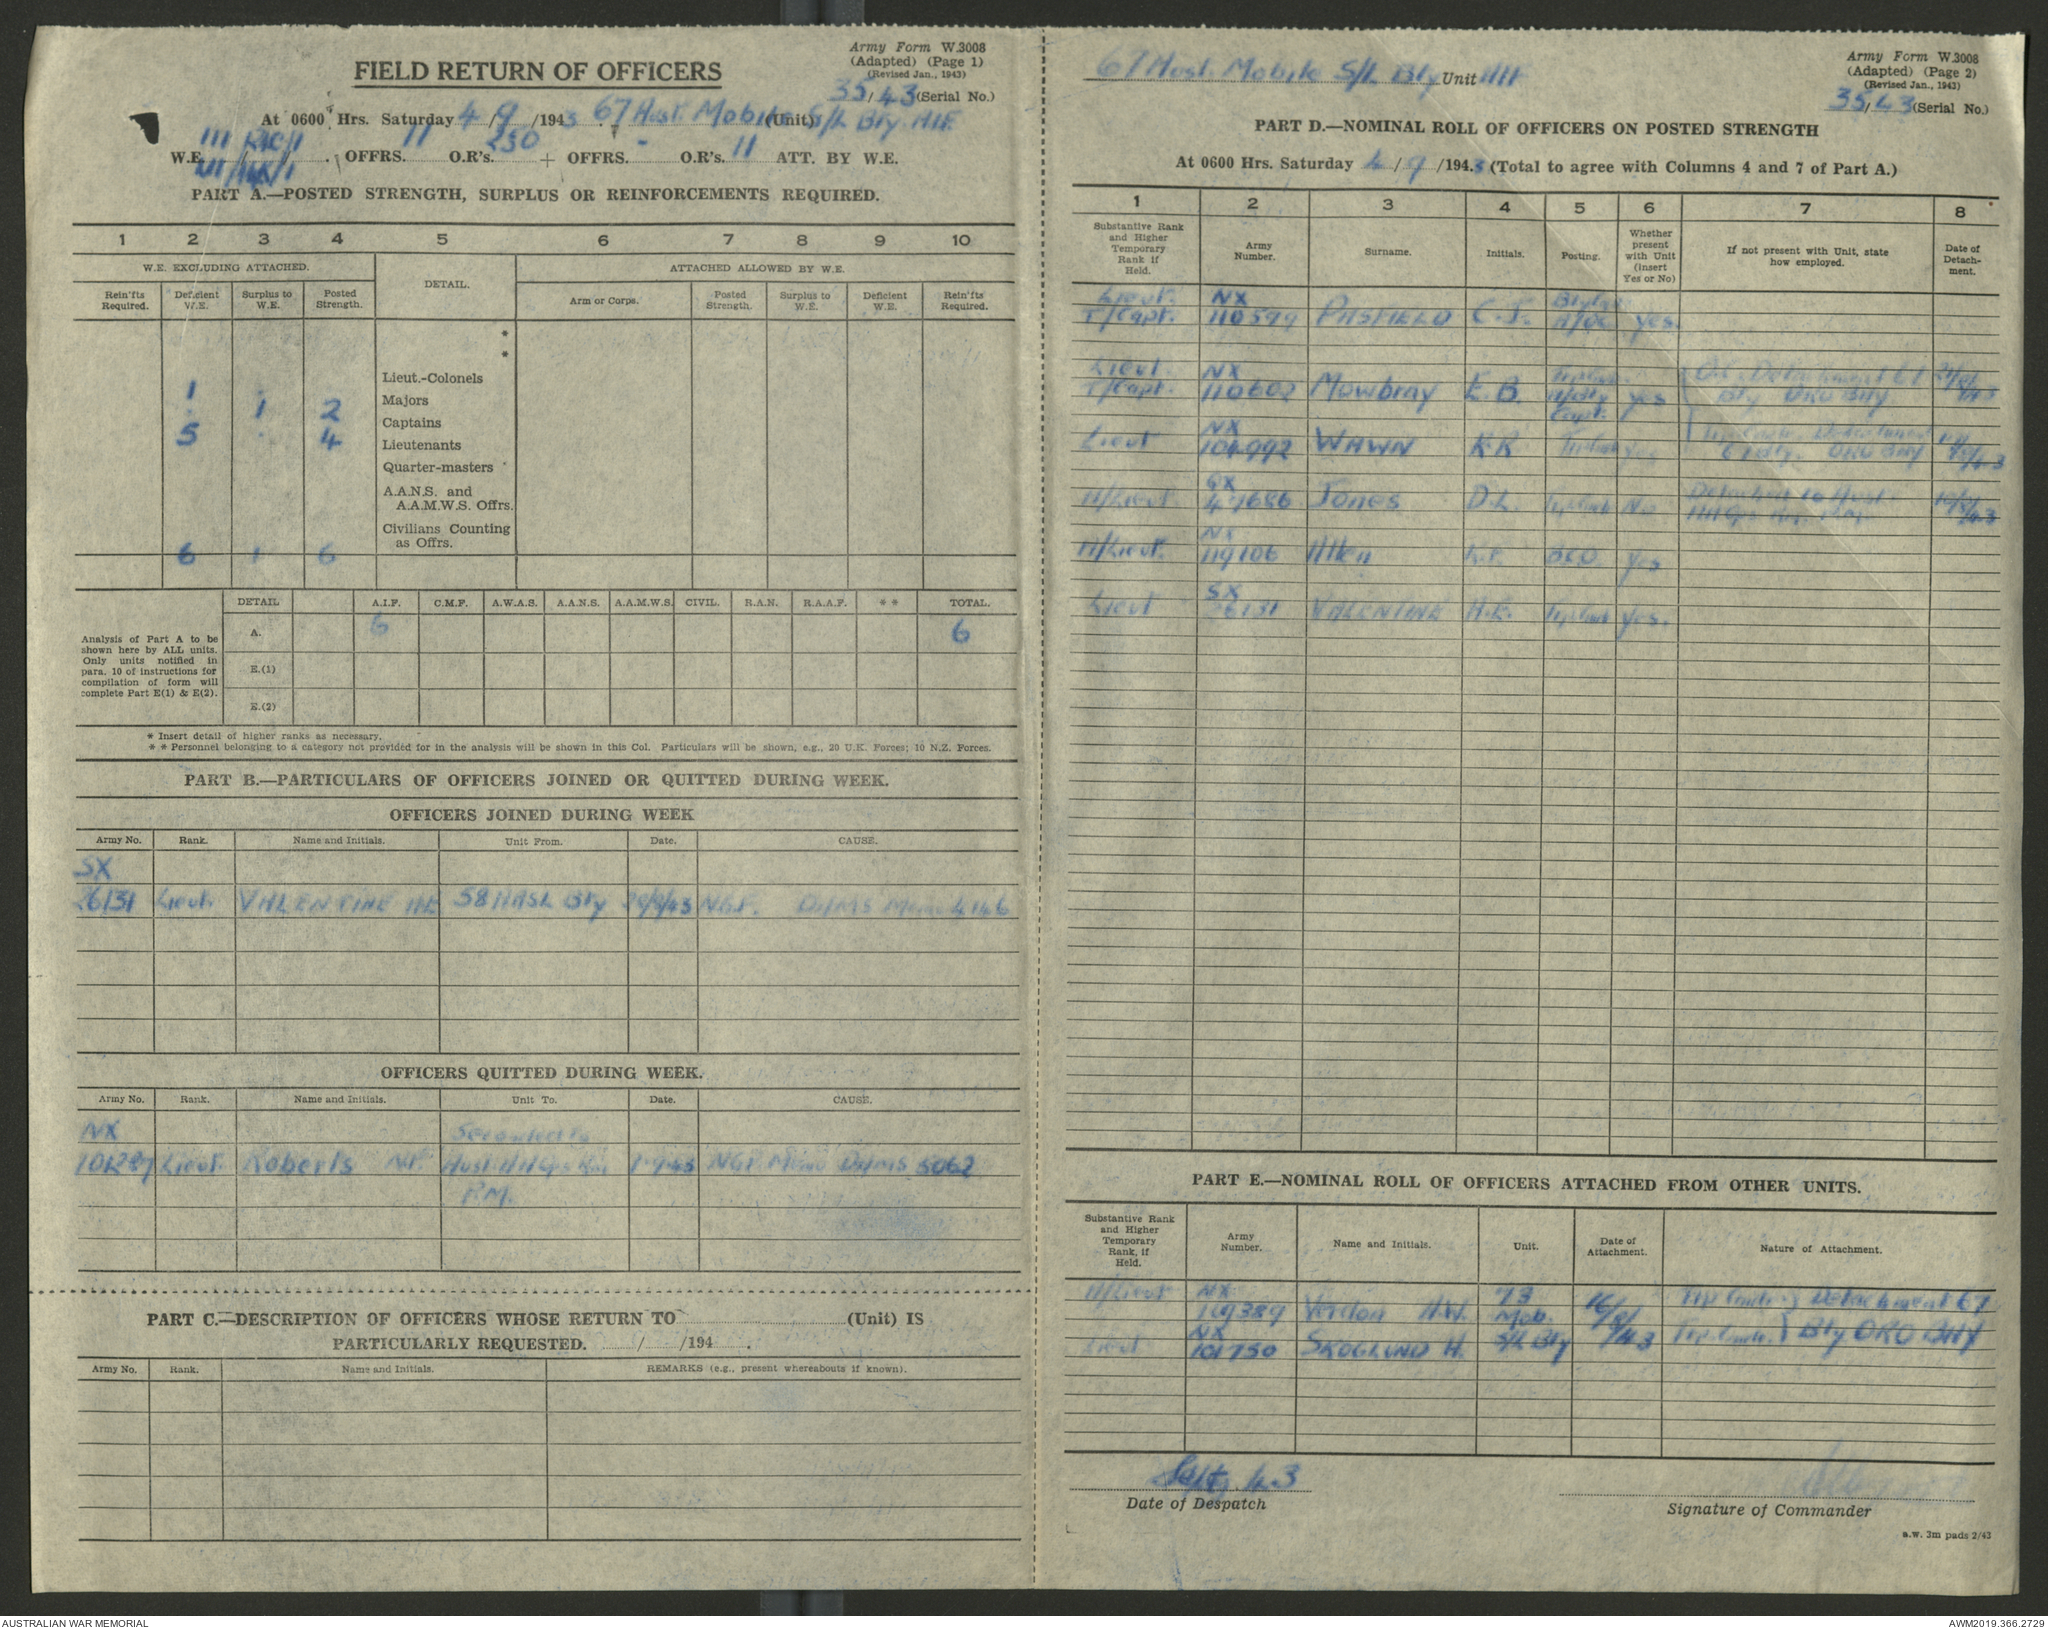 Army Form W.3008
(Adapted) (Page 1)
(Revised Jan., 1943)
FIELD RETURN OF OFFICERS
35/43 (Serial No.)
At 0600 Hrs. Saturday 4/9/1943. 67 Aust. Mobile (Unit) S/L Bty. AIF.
W.E. III /1 . OFFRS. 11 O.R's. 250 + OFFRS. - O.R's. 11 ATT. BY W.E.
PART A.—POSTED STRENGTH, SURPLUS OR REINFORCEMENTS REQUIRED.
1 2 3 4 5 6 7 8 9 10
W.E. EXCLUDING ATTACHED. DETAIL. ATTACHED ALLOWED BY W.E.
Rein'fts Required. Deficient W.E. Surplus to W.E. Posted Strength. Arm or Corps. Posted Strength. Surplus to W.E. Deficient W.E. Rein'fts Required.
*
*
Lieut.-Colonels
1 Majors
1 2 Captains
5 4 Lieutenants
Quarter-masters
A.A.N.S. and
A.A.M.W.S. Offrs.
Civilians Counting
as Offrs.
6 1 6
DETAIL A.I.F. C.M.F. A.W.A.S. A.A.N.S. A.A.M.W.S. CIVIL. R.A.N. R.A.A.F. ** TOTAL.
A. 6 6
E.(1)
E.(2)
Analysis of Part A to be
shown here by ALL units.
Only units notified in
para. 10 of instructions for
compilation of form will
complete Part E(1) & E(2).
* Insert detail of higher ranks as necessary.
** Personnel belonging to a category not provided for in the analysis will be shown in this Col. Particulars will be shown, e.g., 20 U.K. Forces; 10 N.Z. Forces.
PART B.—PARTICULARS OF OFFICERS JOINED OR QUITTED DURING WEEK.
OFFICERS JOINED DURING WEEK
Army No. Rank. Name and Initials. Unit From. Date. CAUSE.
SX
26131 Lieut. VALENTINE H.E. 58 AASL Bty NGF. DAMS Memo 4146
OFFICERS QUITTED DURING WEEK.
Army No. Rank. Name and Initials. Unit To. Date. CAUSE.
NX Seconded to
101287 Lieut. Roberts N.F. Aust. HQ 1-9-43 NGF Memo DAMS 5062
P.M.
PART C.—DESCRIPTION OF OFFICERS WHOSE RETURN TO (Unit) IS
PARTICULARLY REQUESTED. / /194 .
Army No. Rank. Name and Initials. REMARKS (e.g., present whereabouts if known).
67 Aust. Mobile S/L Bty Unit AIF
Army Form W.3008
(Adapted) (Page 2)
(Revised Jan., 1943)
35/43 (Serial No.)
PART D.—NOMINAL ROLL OF OFFICERS ON POSTED STRENGTH
At 0600 Hrs. Saturday 4/9/1943 (Total to agree with Columns 4 and 7 of Part A.)
1 2 3 4 5 6 7 8
Substantive Rank and Higher Temporary Rank if Held. Army Number. Surname. Initials. Posting. Whether present with Unit (Insert Yes or No) If not present with Unit, state how employed. Date of Detach-ment.
Lieut. NX
T/Capt. 110599 PASFIELD C.J. A/OC yes.
Lieut. NX O.C. Detachment 67
T/Capt. 110602 Mowbray E.B. A/Bty Capt. yes Bty ORO BAY
NX
Lieut 104992 WAWN K R yes Detachment 67 Bty. ORO BAY
A/Lieut. 41686 Jones D.L. No Detached to Aust.
NX
A/Lieut. 119106 Allen BEO yes
SX
Lieut 26131 VALENTINE H.E. yes.
PART E.—NOMINAL ROLL OF OFFICERS ATTACHED FROM OTHER UNITS.
Substantive Rank and Higher Temporary Rank, if Held. Army Number. Name and Initials. Unit. Date of Attachment. Nature of Attachment.
A/Lieut NX 109389 Verdon H.W. 73 Mob. S/L Bty 16/8/43 Detachment 67
Lieut NX 101750 SKOGLUND H. Bty ORO BAY
Sept. 43
Date of Despatch
Signature of Commander
a.w. 3m pads 2/43
AUSTRALIAN WAR MEMORIAL
AWM2019.366.2729